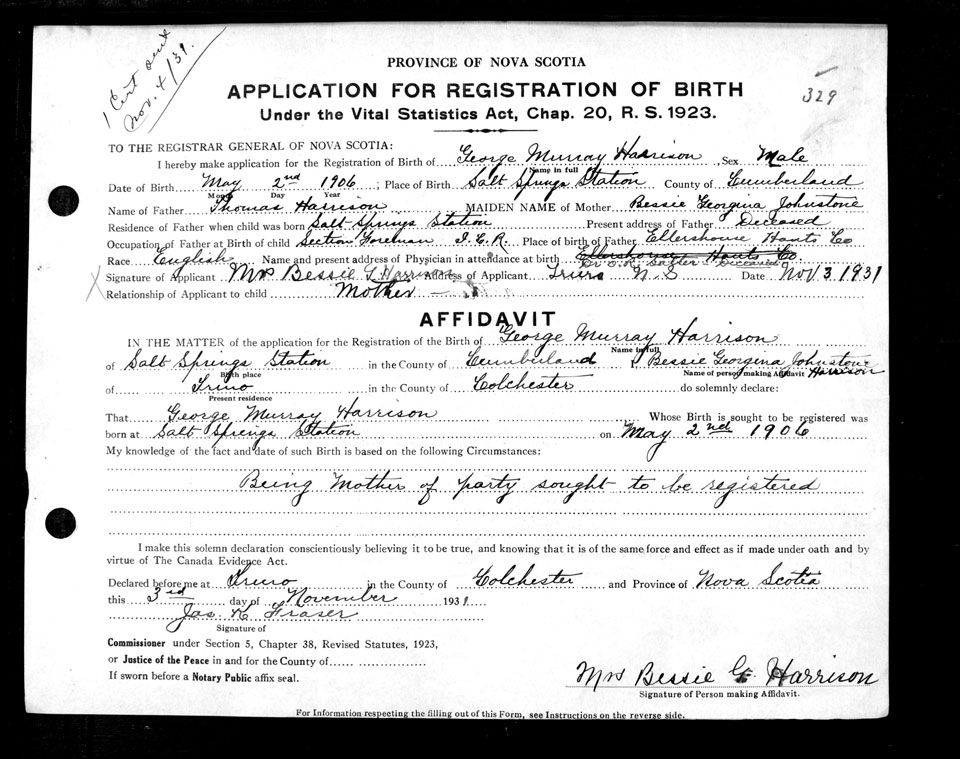 1 Cert sent
Nov. 4/31.
329
PROVINCE OF NOVA SCOTIA
APPLICATION FOR REGISTRATION OF BIRTH
Under the Vital Statistics Act, Chap. 20, R. S. 1923.
TO THE REGISTRAR GENERAL OF NOVA SCOTIA:
I hereby make application for the Registration of Birth of George Murray Harrison, Sex Male
Name in full
Date of Birth May 2nd 1906; Place of Birth Salt Springs Station County of Cumberland
Month Day Year
Name of Father Thomas Harrison MAIDEN NAME of Mother Bessie Georgina Johnstone
Residence of Father when child was born Salt Springs Station Present address of Father Deceased
Occupation of Father at Birth of child Section Foreman I.C.R. Place of birth of Father Ellershouse Hants Co
Race English Name and present address of Physician in attendance at birth Ellershouse Hants Co.
Deceased
X Signature of Applicant Mrs Bessie G Harrison Address of Applicant Truro N.S Date Nov 3 1931
Relationship of Applicant to child Mother
AFFIDAVIT
IN THE MATTER of the application for the Registration of the Birth of George Murray Harrison
Name in full
of Salt Springs Station in the County of Cumberland I Bessie Georgina Johnstone Harrison
Birth place Name of person making Affidavit
of Truro in the County of Colchester do solemnly declare:
Present residence
That George Murray Harrison Whose Birth is sought to be registered was
born at Salt Springs Station on May 2nd 1906
My knowledge of the fact and date of such Birth is based on the following Circumstances:
Being Mother of party sought to be registered
I make this solemn declaration conscientiously believing it to be true, and knowing that it is of the same force and effect as if made under oath and by
virtue of The Canada Evidence Act.
Declared before me at Truro in the County of Colchester and Province of Nova Scotia
this 3rd day of November 1931
Jas. K Fraser
Signature of
Commissioner under Section 5, Chapter 38, Revised Statutes, 1923,
or Justice of the Peace in and for the County of
If sworn before a Notary Public affix seal.
Mrs Bessie G. Harrison
Signature of Person making Affidavit.
For Information respecting the filling out of this Form, see Instructions on the reverse side.